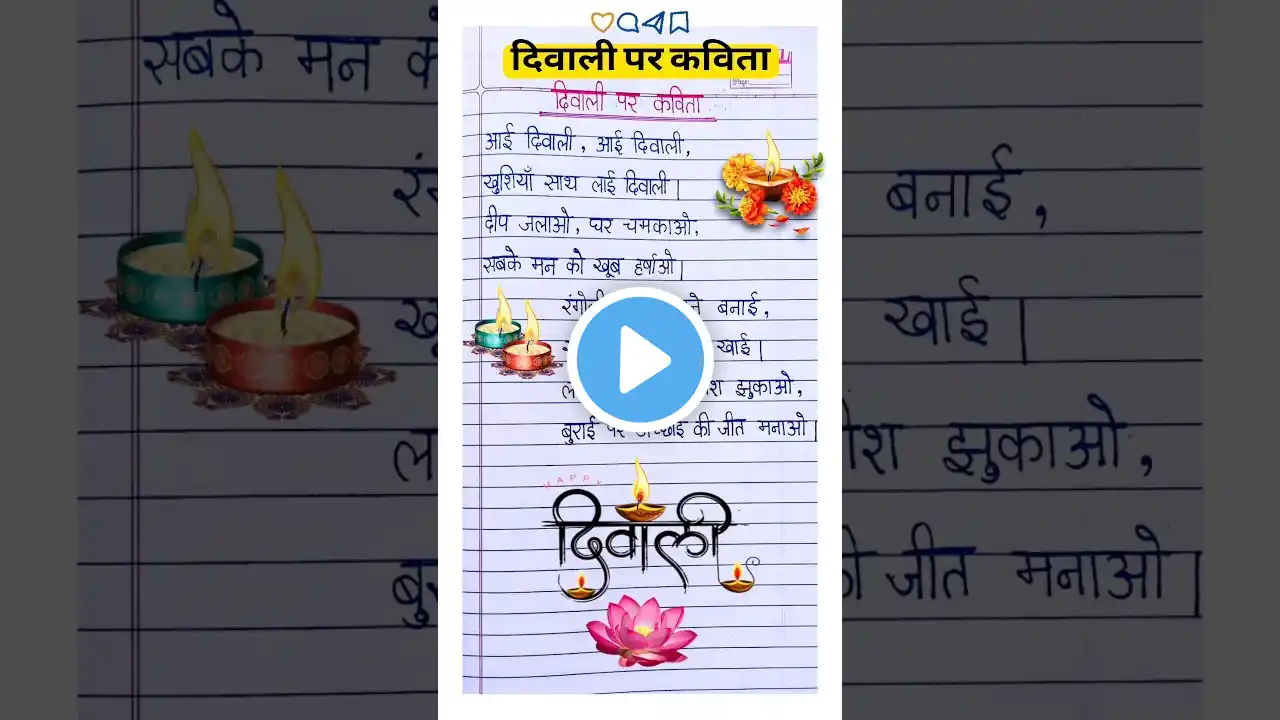 दिवाली पर कविता
Page:
दिवाली पर कविता
आई दिवाली, आई दिवाली,
खुशियाँ साथ लाई दिवाली।
दीप जलाओ, घर चमकाओ,
सबके मन को खूब हर्षाओ।
बनाई,
खाई।
झुकाओ,
बुराई की जीत मनाओ।
HAPPY
दिवाली
सबके मन
बनाई,
खाई।
झुकाओ,
जीत मनाओ।